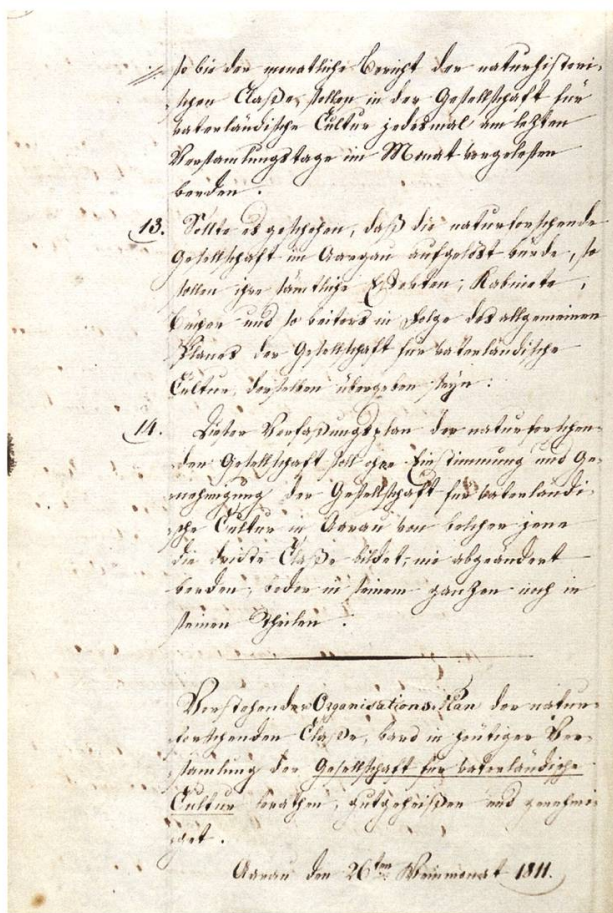 so wie der monatliche Bericht der naturhistori-
schen Claße, sollen in der Gesellschaft für
vaterländische Cultur jedesmal am lezten
Versamlungstage im Monat vorgelesen
werden.
13. Sollte es geschehen, daß die naturforschende
Gesellschaft im Aargau aufgelöst würde, so
sollen ihre sämtliche Effekten, Kabinete,
Bücher und so weiters in Folge des allgemeinen
Planes der Gesellschaft für vaterländische
Cultur, derselben übergeben seyn:
14. Dieser Verfaßungsplan der naturforschen-
den Gesellschaft soll ohne Einstimmung und Ge-
nehmigung der Gesellschaft für vaterländi-
sche Cultur in Aarau von welcher jene
die dritte Claße bildet, nie abgeändert
werden, weder in seinem ganzen noch in
seinen Theilen.
Vorstehender Organisations-Plan der natur-
forschenden Claße, ward in heutiger Ver-
samlung der Gesellschaft für vaterländische
Cultur berathen, gutgeheißen und genehmi-
get.
Aarau den 26ten Weinmonat 1811.